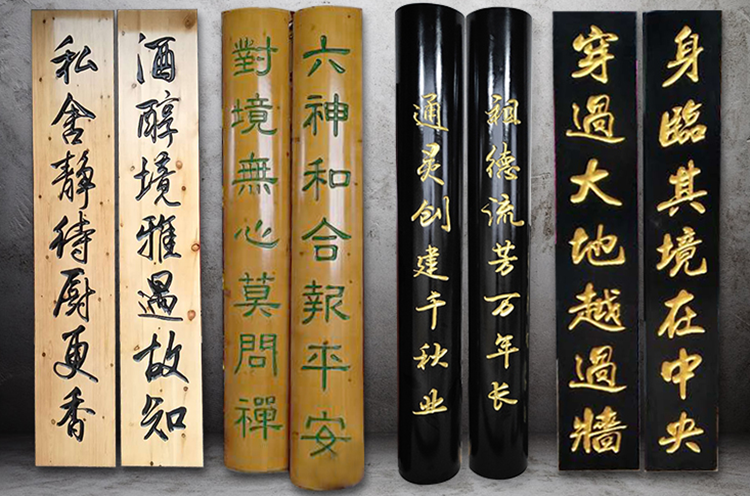 酒醇境雅遇故知
私舍静待厨更香
六神和合報平安
對境無心莫問禪
祖德流芳万年长
通灵创建千秋业
身臨其境在中央
穿過大地越過牆